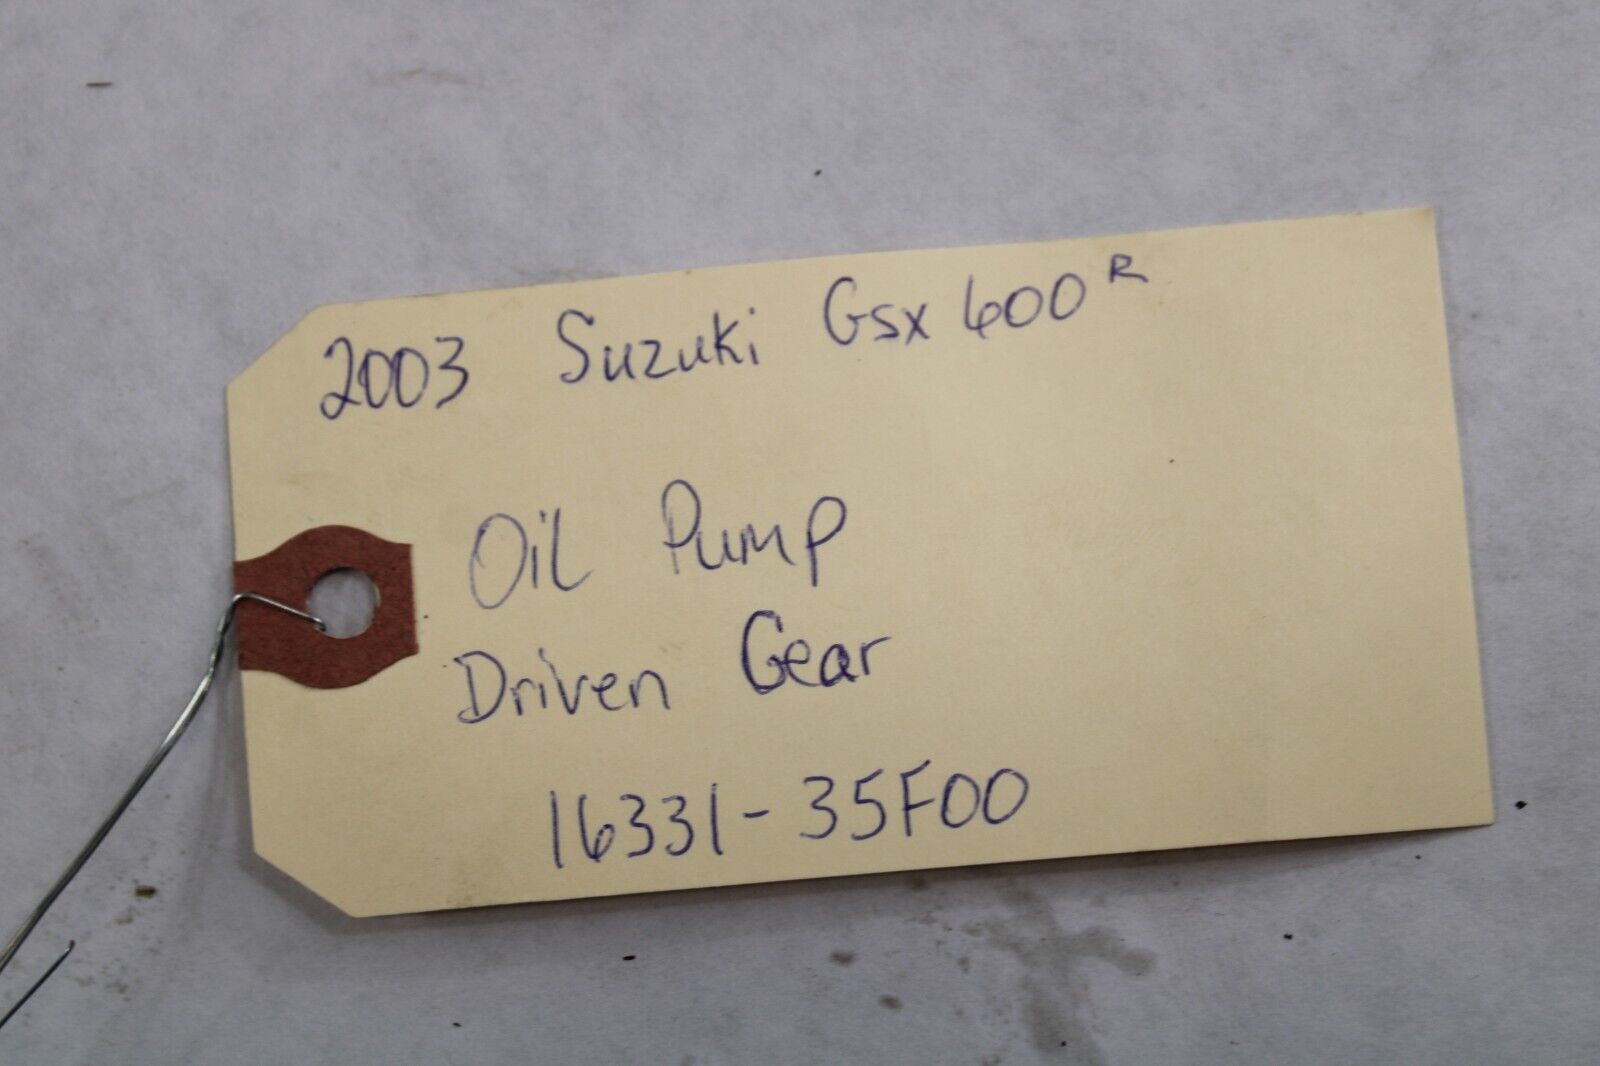 2003 Suzuki Gsx 600 R
Oil Pump
Driven Gear
16331-35F00